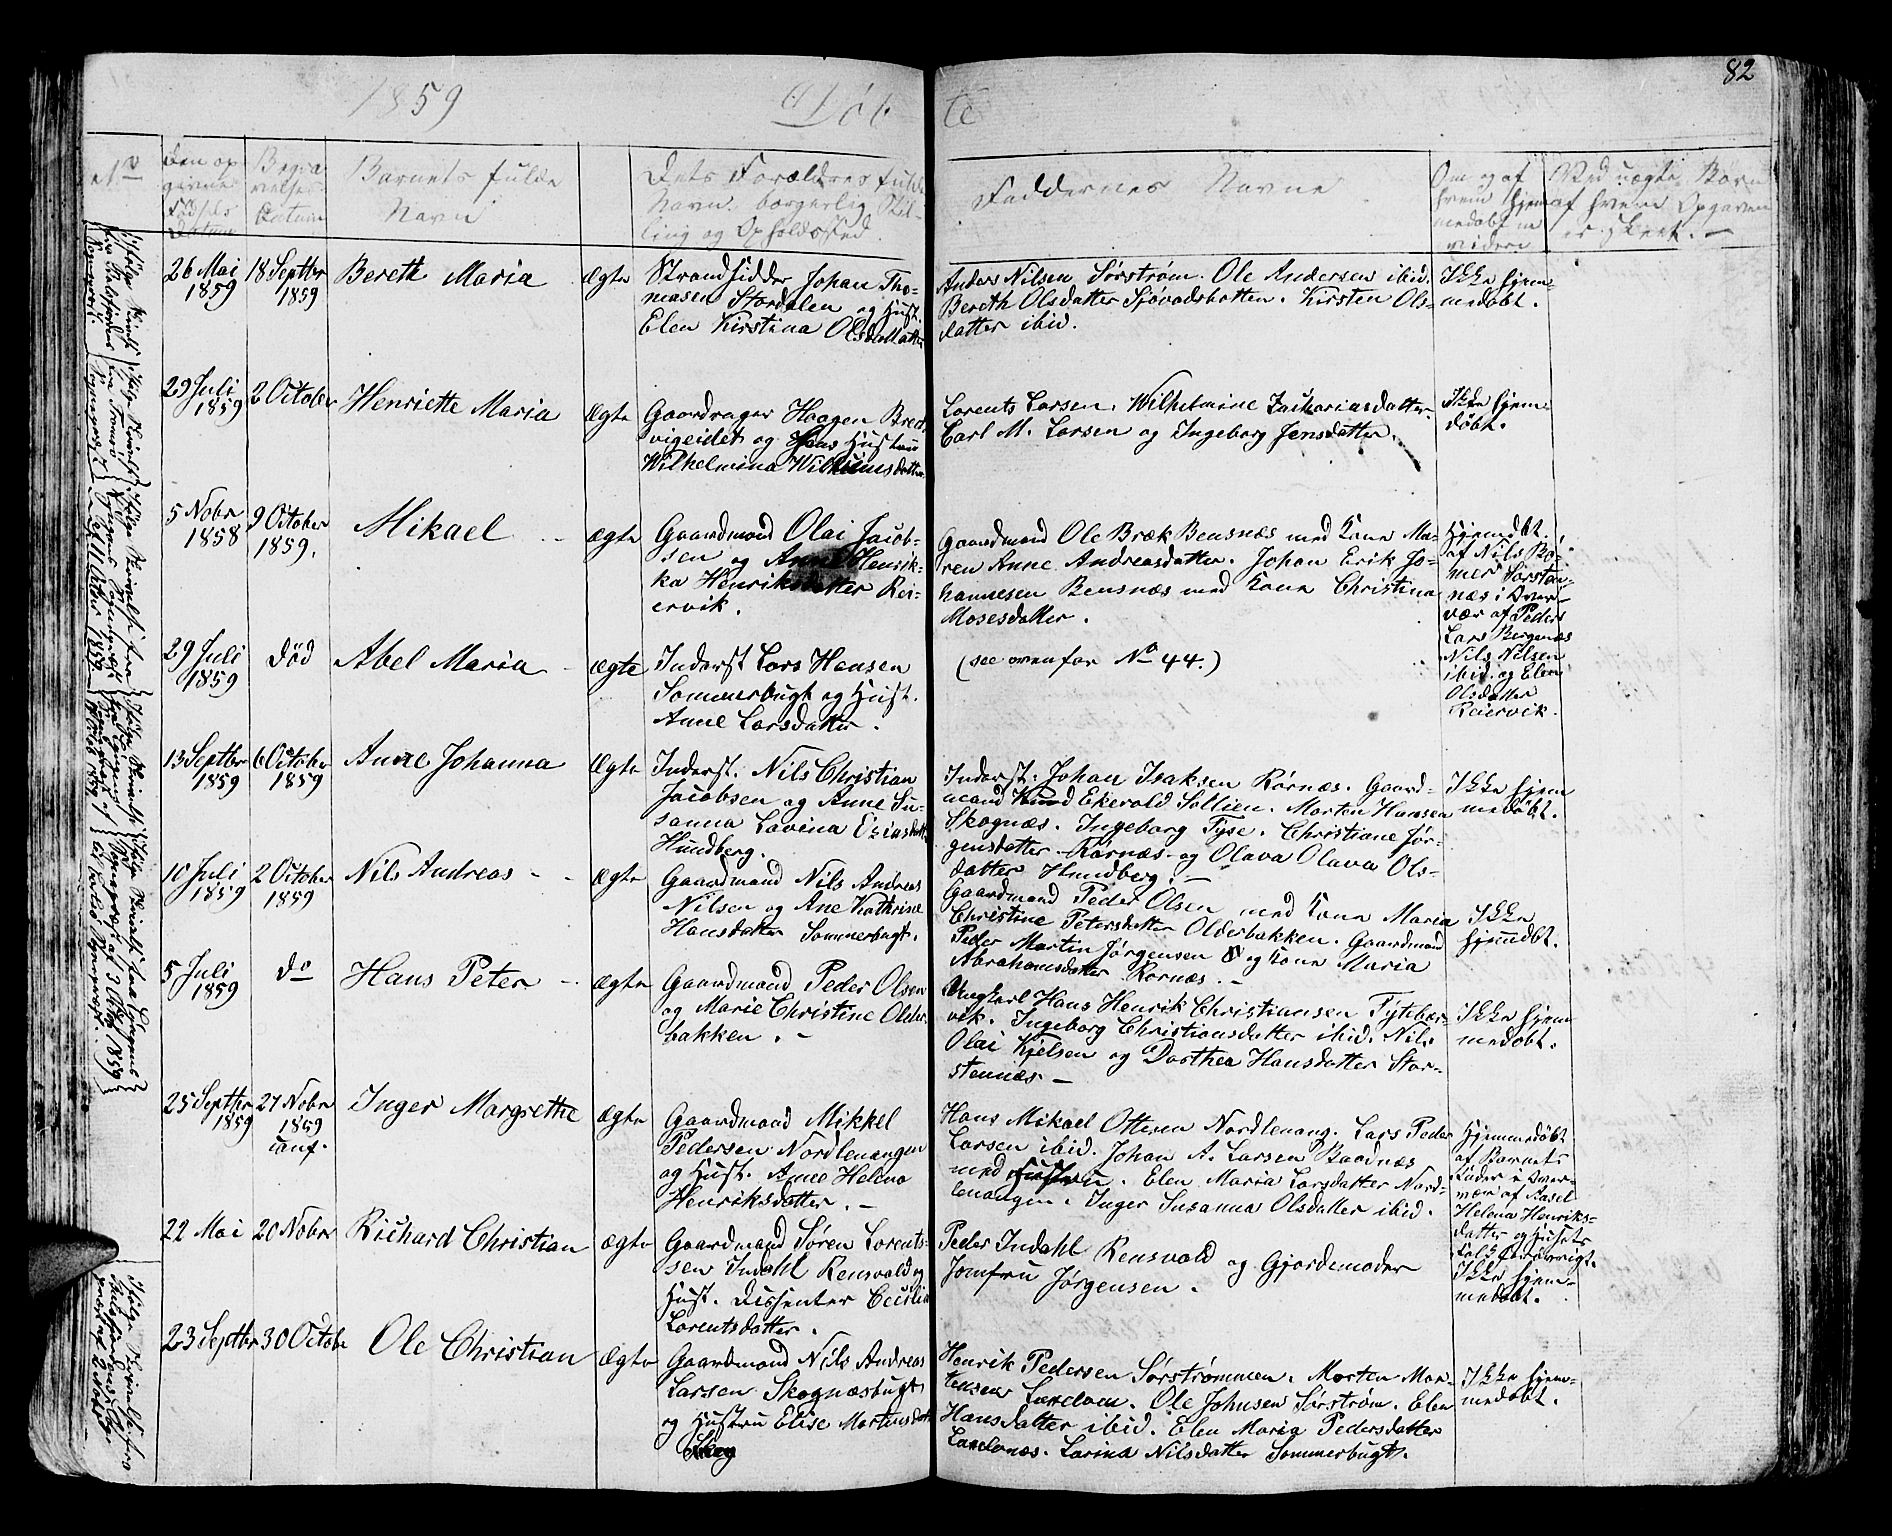 82
1859 Døbte
No
Den op
givne
Fødsels
Datum
Begra
velses
Datum
Barnets fulde
Navn
Dets Forældres fulde
Navn, borgerlig Stil-
ling og Opholdssted.
Faddernes Navne
Om og af
hvem hjem
medøbt m
videre
Ved uægte Børn
af hvem Opgaven
er skeet. —
26 Mai
1859
18 Septbr
1859
Bereth Maria
Ægte
Strandsidder Johan Tho-
mesen Stordalen og Hust.
Elen Kirstina Olsdatter
Anders Nilsen Sørstrøm. Ole Andersen ibid.
Bereth Olsdatter Sjøvadsbotten. Kirsten Ols-
datter ibid.
Ikke hjem-
medøbt.
29 Juli
1859
2 October
Henriette Maria
Ægte
Gaardrager Haagen Bred
vigeidet og Hans Hustru
Wilhelmina Wilhumsdatter
Lorents Larsen. Wilhelmine Zachariasdatter.
Carl M. Larsen og Ingeborg Jensdatter.
Ikke hjem-
døbt.
5 Nobr
1858
9 October
1859.
Mikael
ægte
Gaardmand Olai Jacob-
sen og Anne Henrik-
ka Henriksdatter Rei-
ervik.
Gaardmand Ole Bræk Bensnæs med Kone Ma-
ren Anne Andreasdatter. Johan Erik Jo-
hannesen Bensnæs med Kone Christina
Mosesdatter.
Hjemdøbt
af Nils Ro-
mer Sørsten-
næs i Over-
vær af Peder
Lars Bergenæs
Nils Nilsen
ibid. og Elen
Olsdatter
Reiervik.
29 Juli
1859
død
Abel Maria
ægte
Inderst Lars Hansen
Sommerbugt og Hust.
Anne Larsdatter.
(see ovenfor No 44.)
13 Septbr
1859
6 October
1859
Anne Johanna
Ægte
Inderst. Nils Christian
Jacobsen og Anne Su-
sanna Lovina Esiasdatt
Hundberg.
Inderst. Johan Isaksen Rørnæs. Gaard-
mand Knud Ekerold Sollien. Morten Hansen
Skognæs. Ingeborg Fyse. Christiane Jør-
gensdatter Rørnæs og Olava Olava Ols-
datter Hundberg. —
Ikke hjem
medøbt.
10 Juli
1859
2 October
1859
Nils Andreas
ægte
Gaardmand Nils Andreas
Nilsen og Ane Kathrine
Hansdatter Sommerbugt.
Gaardmand Peder Olsen med Kone Maria
Christine Petersdatter Olderbakken. Gaardmand
Peder Martin Jørgensen og Kone Maria
Abrahamsdatter Rørnæs. —
Ikke
hjemdøbt.
5 Juli
1859
do
Hans Peter
ægte
Gaardmand Peder Olsen
og Marie Christine Older-
bakken. —
Ungkarl Hans Henrik Christiansen Tytebær-
vik. Ingeborg Christiansdatter ibid. Nils
Olai Kjelsen og Dorthea Hansdatter Stor-
stennæs —
Ikke hjem
medøbt.
25 Septbr
1859
27 Nobr
1859
conf.
Inger Margrethe
ægte
Gaardmand Mikkel
Pedersen Nordlenangen
og Hust. Anne Helena
Henriksdatter. —
Hans Mikael Ottesen Nordlenang. Lars Peder
Larsen ibid. Johan A. Larsen Baadnæs
med Hustru. Elen Maria Larsdatter Nord-
lenangen. Inger Susanna Olsdatter ibid.
Hjemmedøbt
af Barnets
Fader i Over-
vær af
Helena Henriks-
datter og Husets
Folk
22 Mai
20 Nobr
Richard Christian
ægte
Gaardmand Søren Lorents-
sen Indahl Rensvold og
Hust. Dissenter Cecilia
Lorentsdatter.
Peder Indahl Rensvold og Gjordemoder
Jomfru Jørgensen.
Ikke hjem-
medøbt.
23 Septbr
30 Octobr
Ole Christian
ægte
Gaardmand Nils Andreas
Larsen Skognæsbugt
og Hustru Elise Martinsdatt
Skog
Henrik Pedersen Sørstrømmen. Morten Mor-
tensen. Ole Johnsen Sørstrøm. Elen
Hansdatter ibid. Elen Maria Pedersdatter
Larina Nilsdatter Sommerbugt.
Ikke hjem-
medøbt.